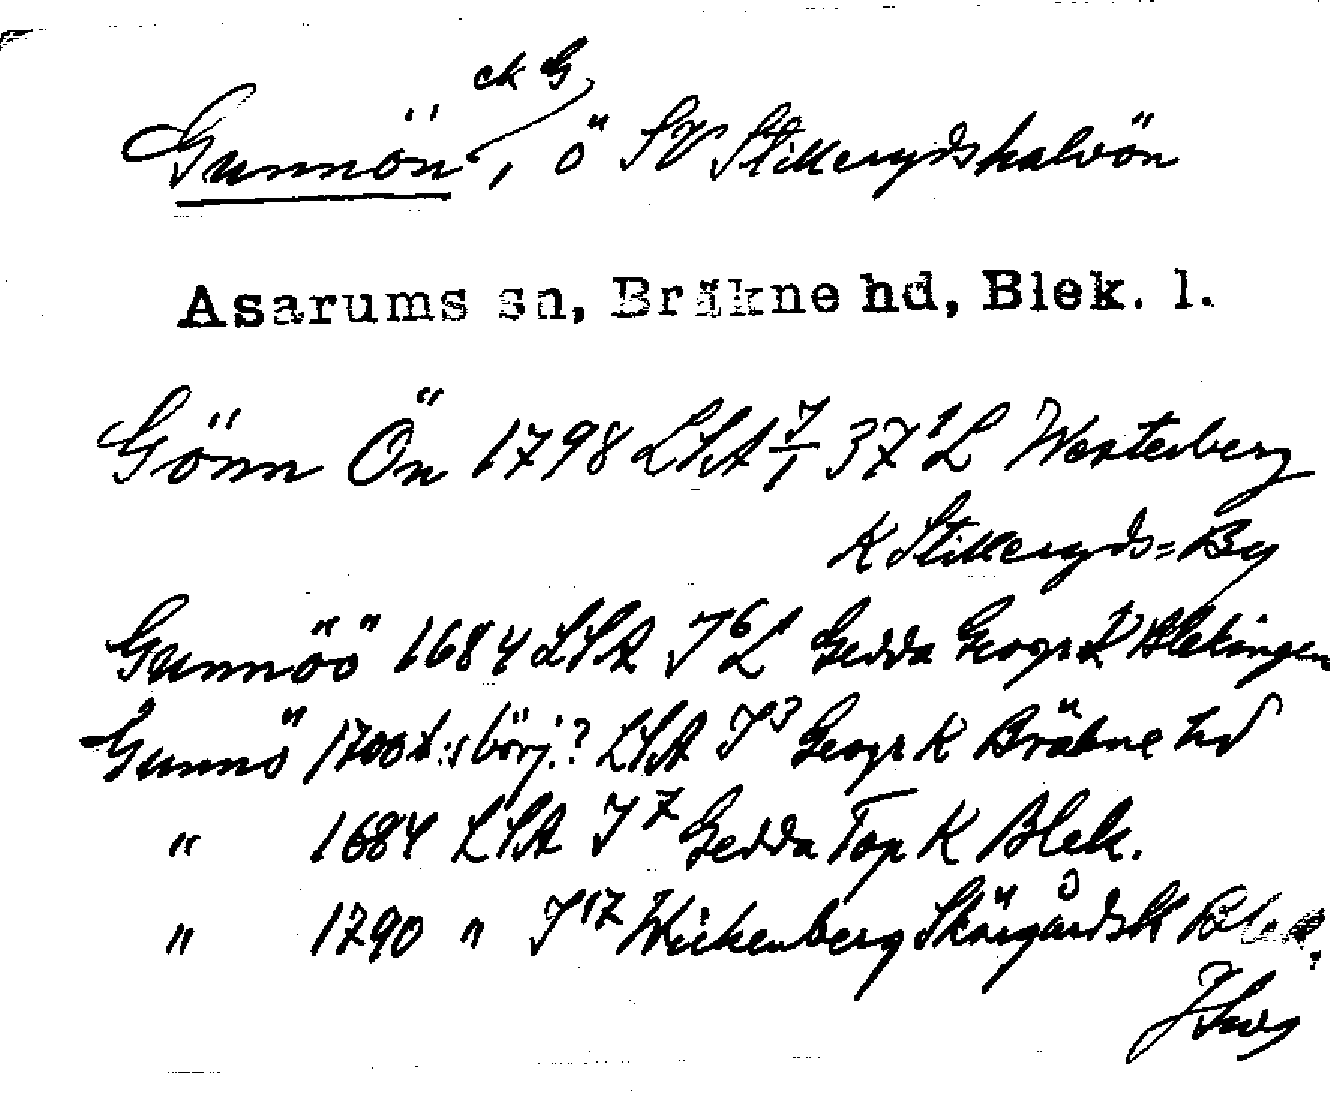 ek G
Gunnön, ö SV Stillerydshalvön
Asarums sn, Bräkne hd, Blek. l.
Gönn Ön 1798 LSA 7/1 37 L Westerberg
K Stilleryds=By
Gunnöö 1684 LSA J6 L Gedda Geogr K Blekingen
Gunnö 1700 t:s börj.? LSA J3 Geogr K Bräkne hd
" 1684 LSA J7 Gedda Top K Blek.
" 1790 " J17 Wickenberg SkärgårdsK Blek.